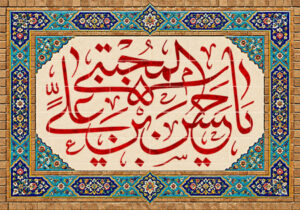 یا حسن بن علی
المجتبی